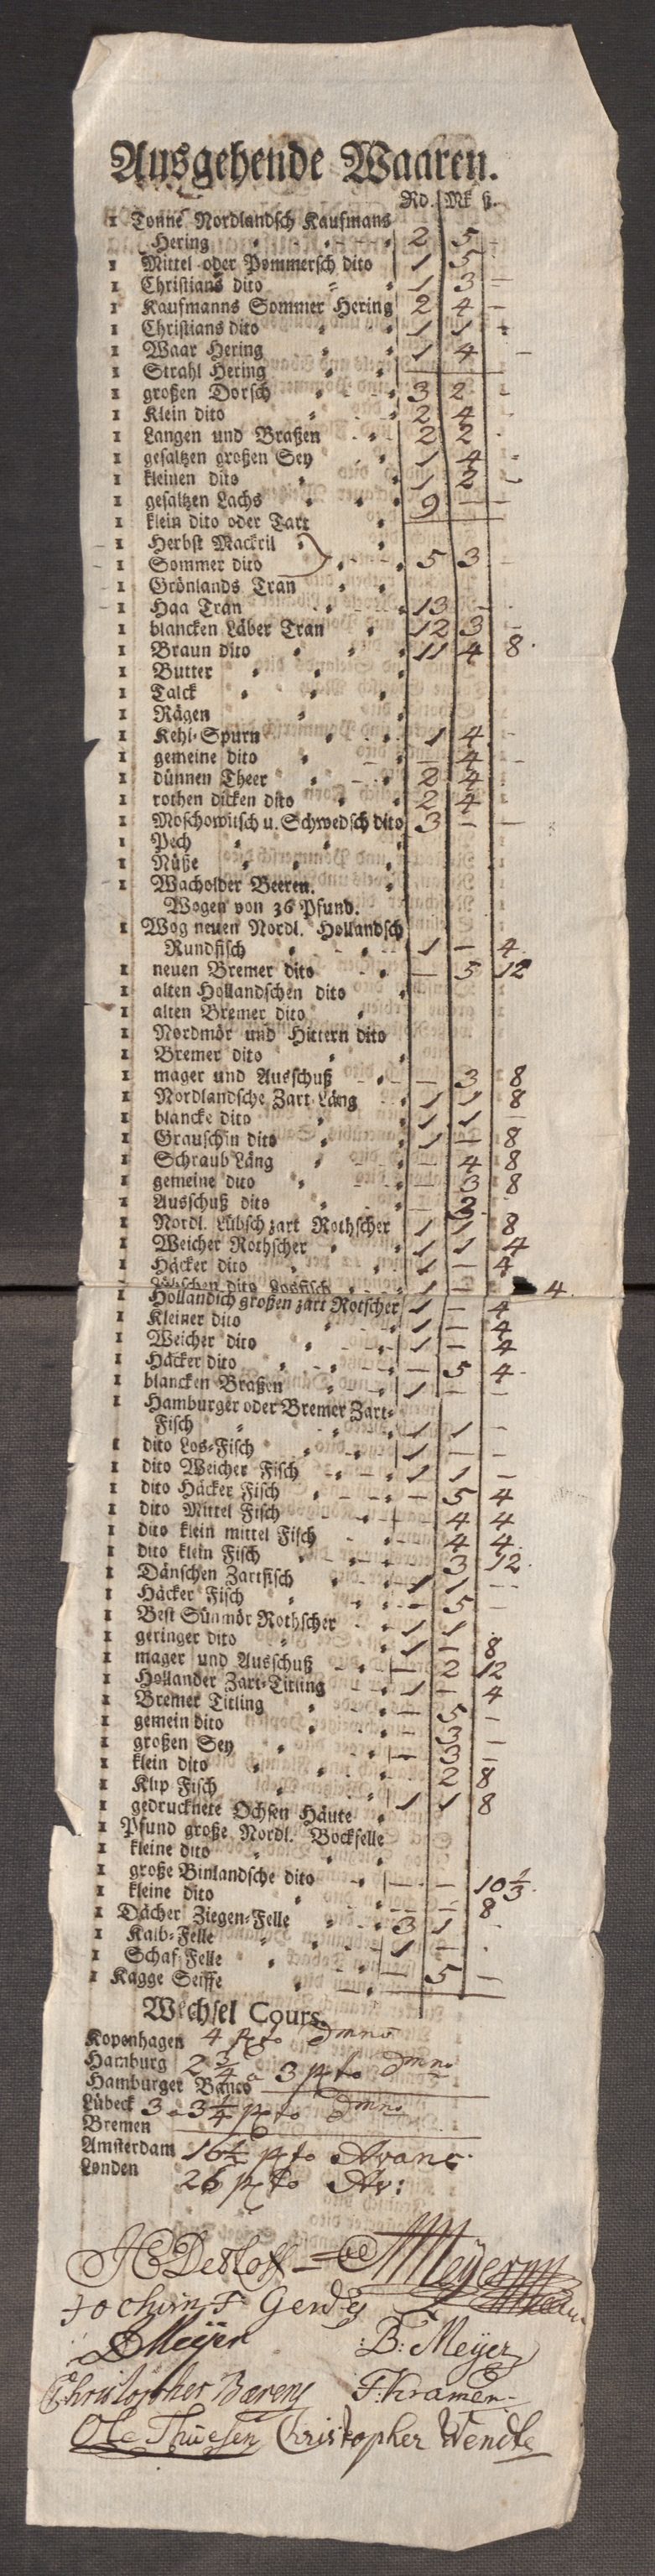 Ausgehende Waaren.
Rd. Mk ß.
1 Tonne Nordlandsch Kaufmans
Hering 2 5 -
1 Mittel oder Pommersch dito 1 5
1 Christians dito 1 3 -
1 Kaufmanns Sommer Hering 2 4 -
1 Christians dito 1 1 -
1 Waar Hering 1 4 -
1 Strahl Hering
1 großen Dorsch 3 2 -
1 Klein dito 2 4
1 Langen und Braßen 2 2
1 gesaltzen großen Sey 1 4
1 kleinen dito 1 2 -
1 gesaltzen Lachs 9 - -
1 klein dito oder Tart
1 Herbst Mackril
1 Sommer dito 5 3 -
1 Grönlands Tran
1 Haa Tran 13 -
1 blancken Läber Tran 12 3 -
1 Braun dito 11 4 8
1 Butter
1 Talck
1 Rägen
1 Kehl-Spurn 1 4 -
1 gemeine dito - 4 -
1 dünnen Theer 2 4
1 rothen dicken dito 2 4
1 Moschowitsch u. Schwedsch dito 3 - -
1 Pech
1 Nüße
1 Wacholder Beeren.
Wogen von 36 Pfund.
1 Wog neuen Nordl. Hollandsch
Rundfisch 1 - 4
1 neuen Bremer dito - 5 12
1 alten Hollandschen dito
1 alten Bremer dito
1 Nordmör und Hittern dito
1 Bremer dito
1 mager und Ausschuß - 3 8
1 Nordlandsche Zart Läng 1 1 8
1 blancke dito 1 1 -
1 Grauschin dito 1 - 8
1 Schraub Läng - 4 8
1 gemeine dito - 3 8
1 Ausschuß dito - 3
1 Nordl. Lübsch zart Rothscher 1 1 8
1 Weicher Rothscher 1 1 4
1 Häcker dito 1 - 4
Lübschen dito Losfisch 1 - 4
1 Hollandich großen zart Rotscher 1 - 4
1 Kleiner dito 1 - 4
1 Weicher dito 1 - 4
1 Häcker dito - 5 4
1 blancken Braßen 1 - -
1 Hamburger oder Bremer Zart-
Fisch 1 1 -
1 dito Los-Fisch 1 - -
1 dito Weicher Fisch 1 1 -
1 dito Häcker Fisch - 5 4
1 dito Mittel Fisch - 4 4
1 dito klein mittel Fisch - 4 4
1 dito klein Fisch - 3 12
1 Dänschen Zartfisch 1 1 -
1 Häcker Fisch - 5 -
1 Best Sünmör Rothscher 1 1
1 geringer dito 1 - 8
1 mager und Ausschuß - 2 12
1 Hollander Zart-Titling 1 - 4
1 Bremer Titling - 5 -
1 gemein dito - 3 -
1 großen Sey - 3 -
1 klein dito - 2 8
1 Klip Fisch 1 1 8
1 gedrucknete Ochsen Häute
1 Pfund große Nordl. Bockfelle
1 kleine dito
1 große Binlandsche dito - - 10 1/3
1 kleine dito - - 8
1 Dächer Ziegen-Felle 3 1
1 Kalb-Felle 1 -
1 Schaf Felle - 5 -
1 Kagge Seiffe
Wechsel Cours.
Kopenhagen 4 pto Dmno
Hamburg 2 3/4 a 3 pto Dmno
Hamburger Banco
Lübeck 3 a 3 1/4 pto Dmno
Bremen
Amsterdam 16 1/2 pto Avanc
Londen 26 pto Av:
HDetloff
Meÿer
Jochim F Gerdes
Meÿer B: Meÿer
Christopher Barens F: Kramer
Ole Thuesen Christopher Wendte